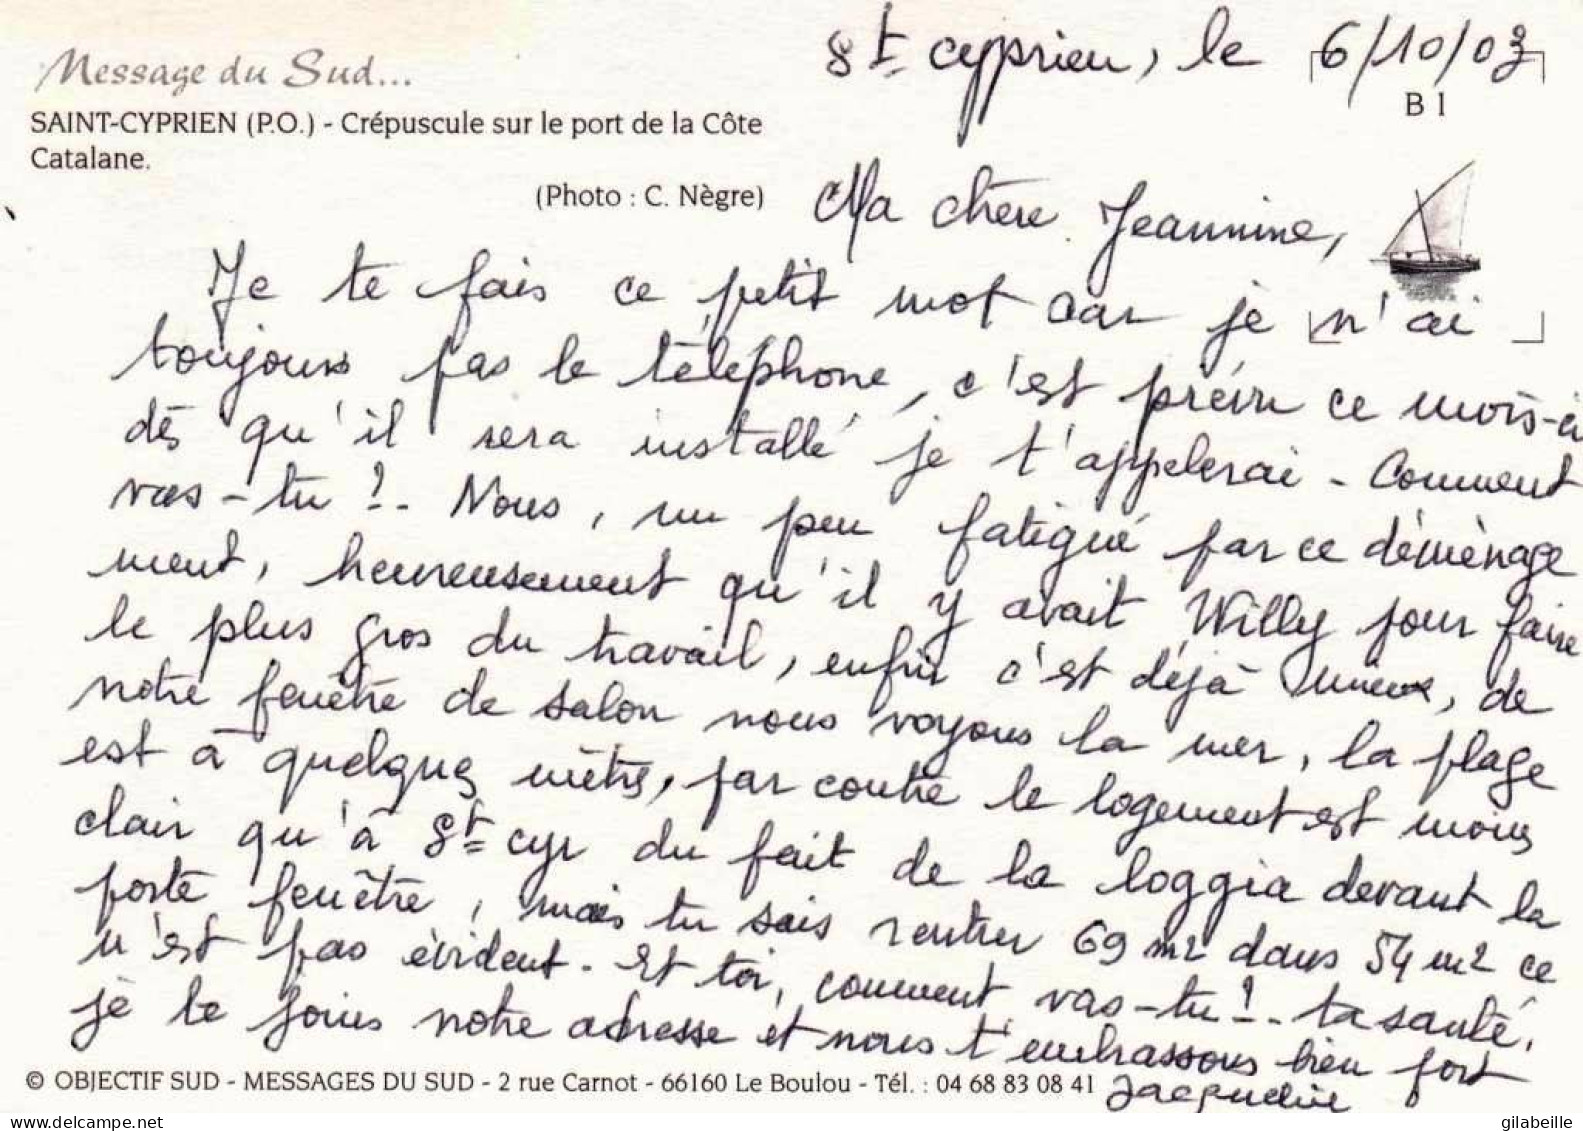 St cyprien, le 6/10/03
Message du Sud...
B 1
SAINT-CYPRIEN (P.O.) - Crépuscule sur le port de la Côte
Catalane.
(Photo : C. Nègre)
Ma chère Jeannine,
Je te fais ce petit mot car je n'ai
toujours pas le téléphone, c'est prévu ce mois-ci
dès qu'il sera installé je t'appelerai - Comment
vas-tu ?. Nous, un peu fatigué par ce déménage
ment, heureusement qu'il y avait Willy pour faire
le plus gros du travail, enfin c'est déjà mieux, de
notre fenêtre de salon nous voyons la mer, la plage
est à quelques mètres, par contre le logement est moins
clair qu'à St cyr du fait de la loggia devant la
porte fenêtre, mais tu sais rentrer 69 m2 dans 54 m2 ce
n'est pas évident. Et toi, comment vas-tu ?. ta santé,
je te joins notre adresse et nous t'embrassons bien fort
Jacqueline
© OBJECTIF SUD - MESSAGES DU SUD - 2 rue Carnot - 66160 Le Boulou - Tél. : 04 68 83 08 41
www.delcampe.net
gilabeille